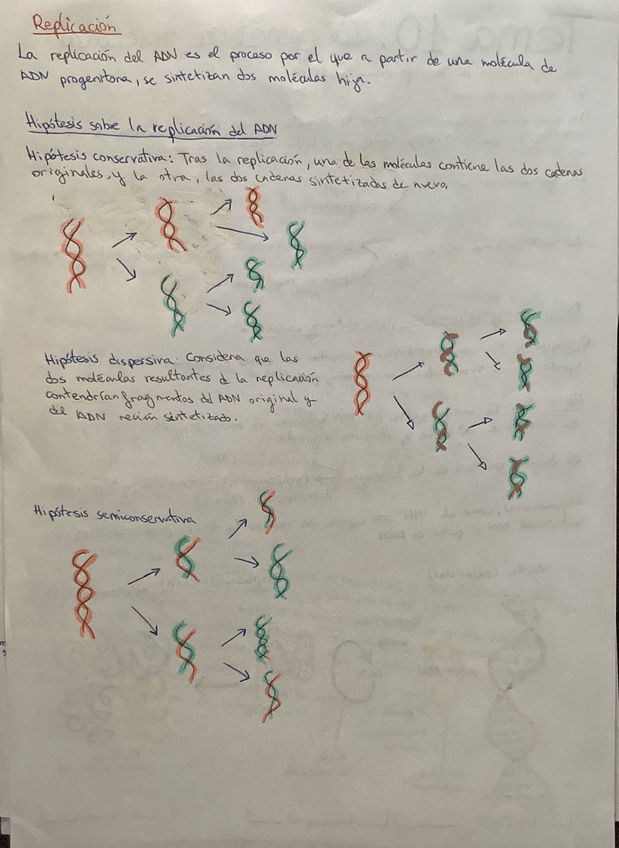 Replicación
La replicación del ADN es el proceso por el que a partir de una molécula de
ADN progenitora, se sintetizan dos moléculas hija.
Hipótesis sobre la replicación del ADN
Hipótesis conservativa: Tras la replicación, una de las moléculas contiene las dos cadenas
originales, y la otra, las dos cadenas sintetizadas de nuevo.
Hipótesis dispersiva. Considera que las
dos moléculas resultantes d la replicación
contendrían fragmentos del ADN original y
del ADN recién sintetizado.
Hipótesis semiconservativa